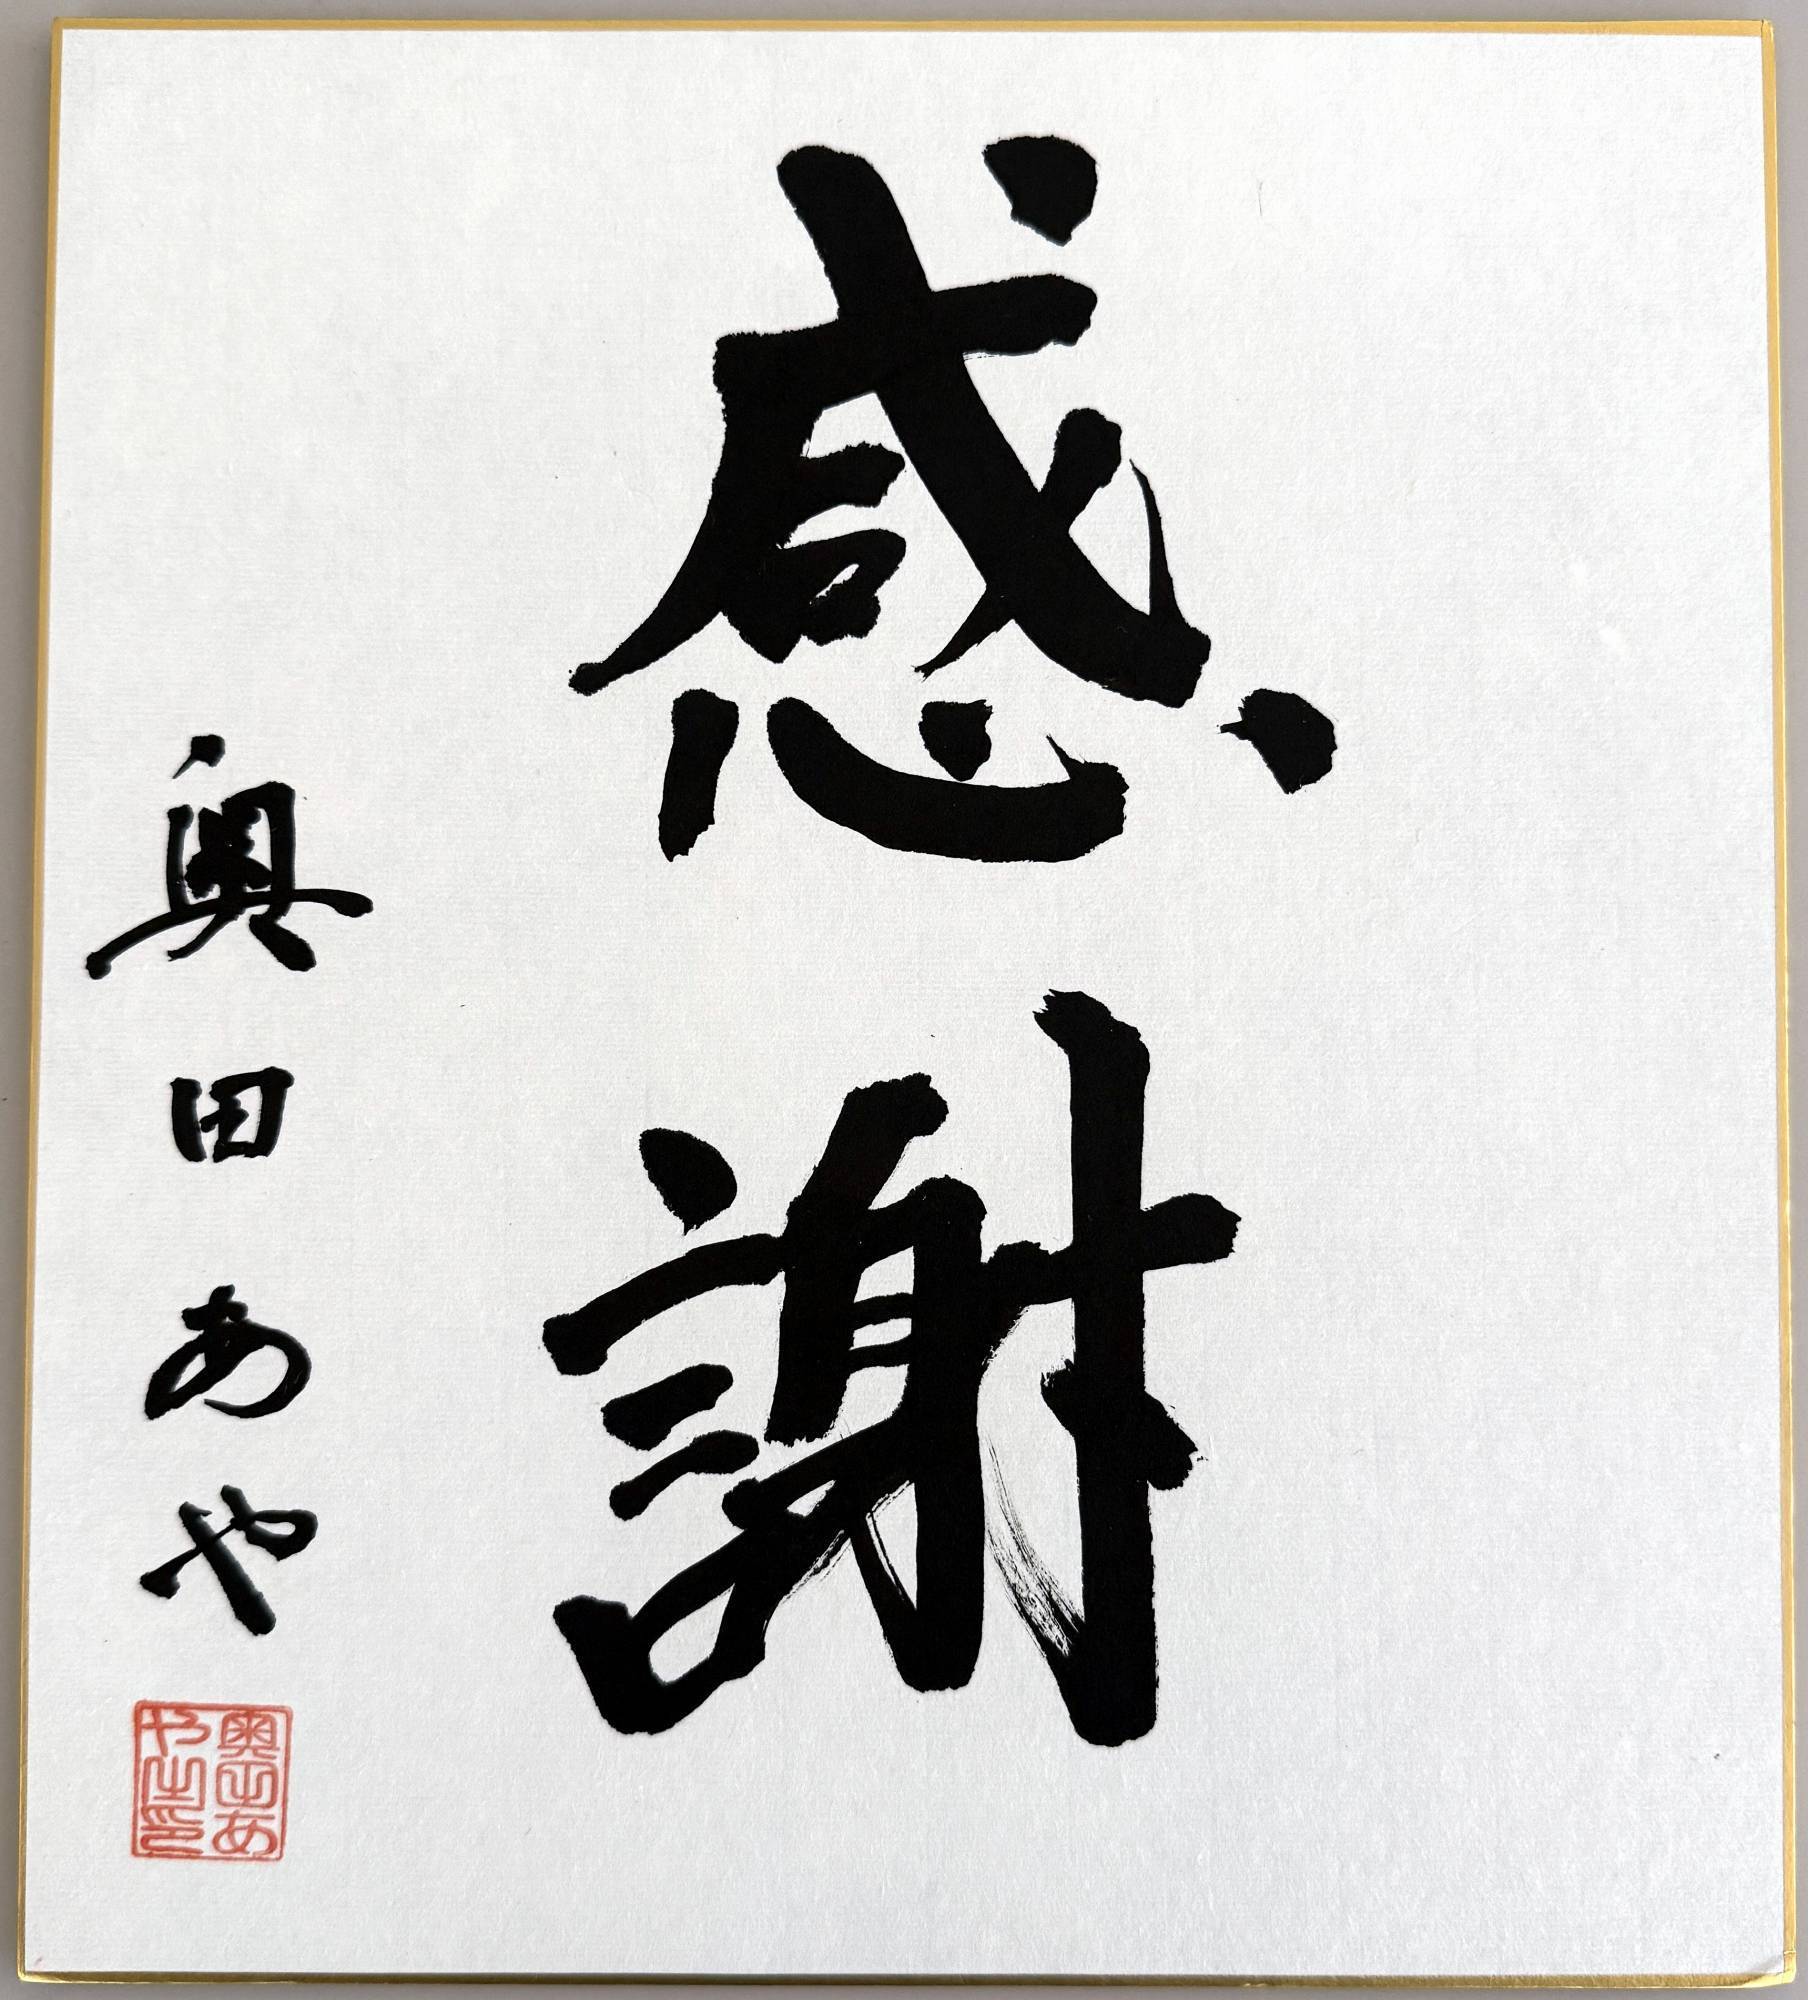 感謝
奥田あや
奥田あ
や之印